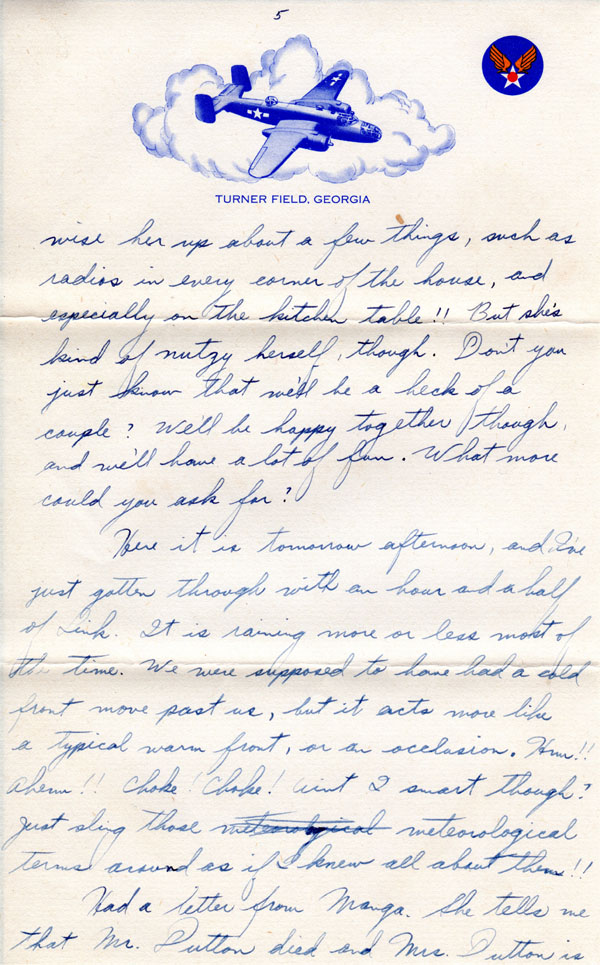 5
TURNER FIELD, GEORGIA
wise her up about a few things, such as
radios in every corner of the house, and
especially on the kitchen table!! But she's
kind of nutzy herself, though. Don't you
just know that we'll be a heck of a
couple? We'll be happy together though,
and we'll have a lot of fun. What more
could you ask for?
Here it is tomorrow afternoon, and I've
just gotten through with an hour and a half
of Link. It is raining more or less most of
the time. We were supposed to have had a cold
front move past us, but it acts more like
a typical warm front, or an occlusion. Hmm!!
Ahem!! Choke! Choke! Aint I smart though?
Just sling those meteorological meteorological
terms around as if I knew all about them!!
Had a letter from Manga. She tells me
that Mr. Dutton died and Mrs. Dutton is